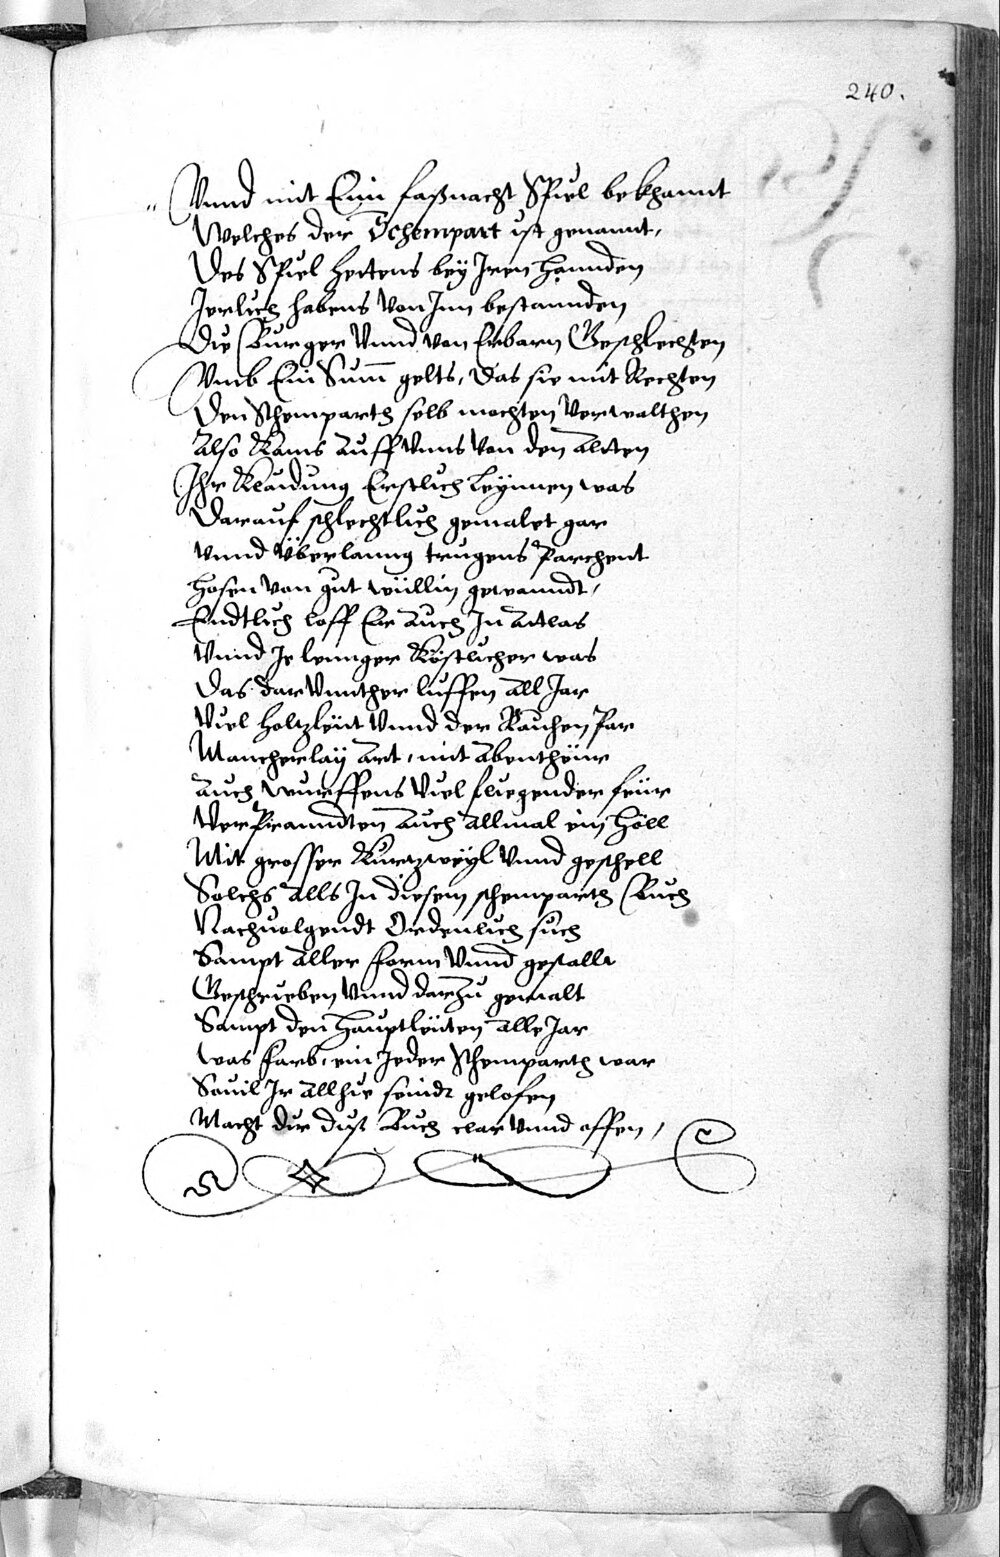 240.
Vnnd mit Eim faßnacht Spiel bekhannt
Welches der Schempart ist genannt,
Des Spiel hettens bey Iren hannden
Jerlich habens Von Inn bestannden
Die Burger Vnnd von Erbarn Geschlechten
Vmb Ein Sum̄ gelts, Das sie mit Rechten
Den Schemparth selb mochten Verwalthen
Also Kams auff Vnns von den Altten
Ihr Klaidung Erstlich leynnen was
Darauf schlechtlich gemalet gar
Vnnd Überlanng trugens Parchent
Hosen von gut wüllin gewanndt,
Endtlich loff Er auch In Attlas
Vnnd Je lennger Köstlicher was
Das darVnnther luffen all Jar
Viel holtzleüt Vnnd der Rauchen Par
Mancherlaÿ Art, mit Abentheür
Auch wurffens Viel fliegender feür
VerPranndten auch allmal ein Höll
Mit grosser Kurtzweÿl Vnnd geschell
Solchs alls In diesem schemparth Buch
Nachuolgendt Ordenlich such
Sampt aller form Vnnd gestallt
Geschrieben Vnnd darzu gemalt
Sampt den Hauptleüten alle Jar
Was farb, ein Jeder Schemparth war
Sovil Ir allhie seindt gelofen
Macht dir diß Buch clar Vnnd offen,